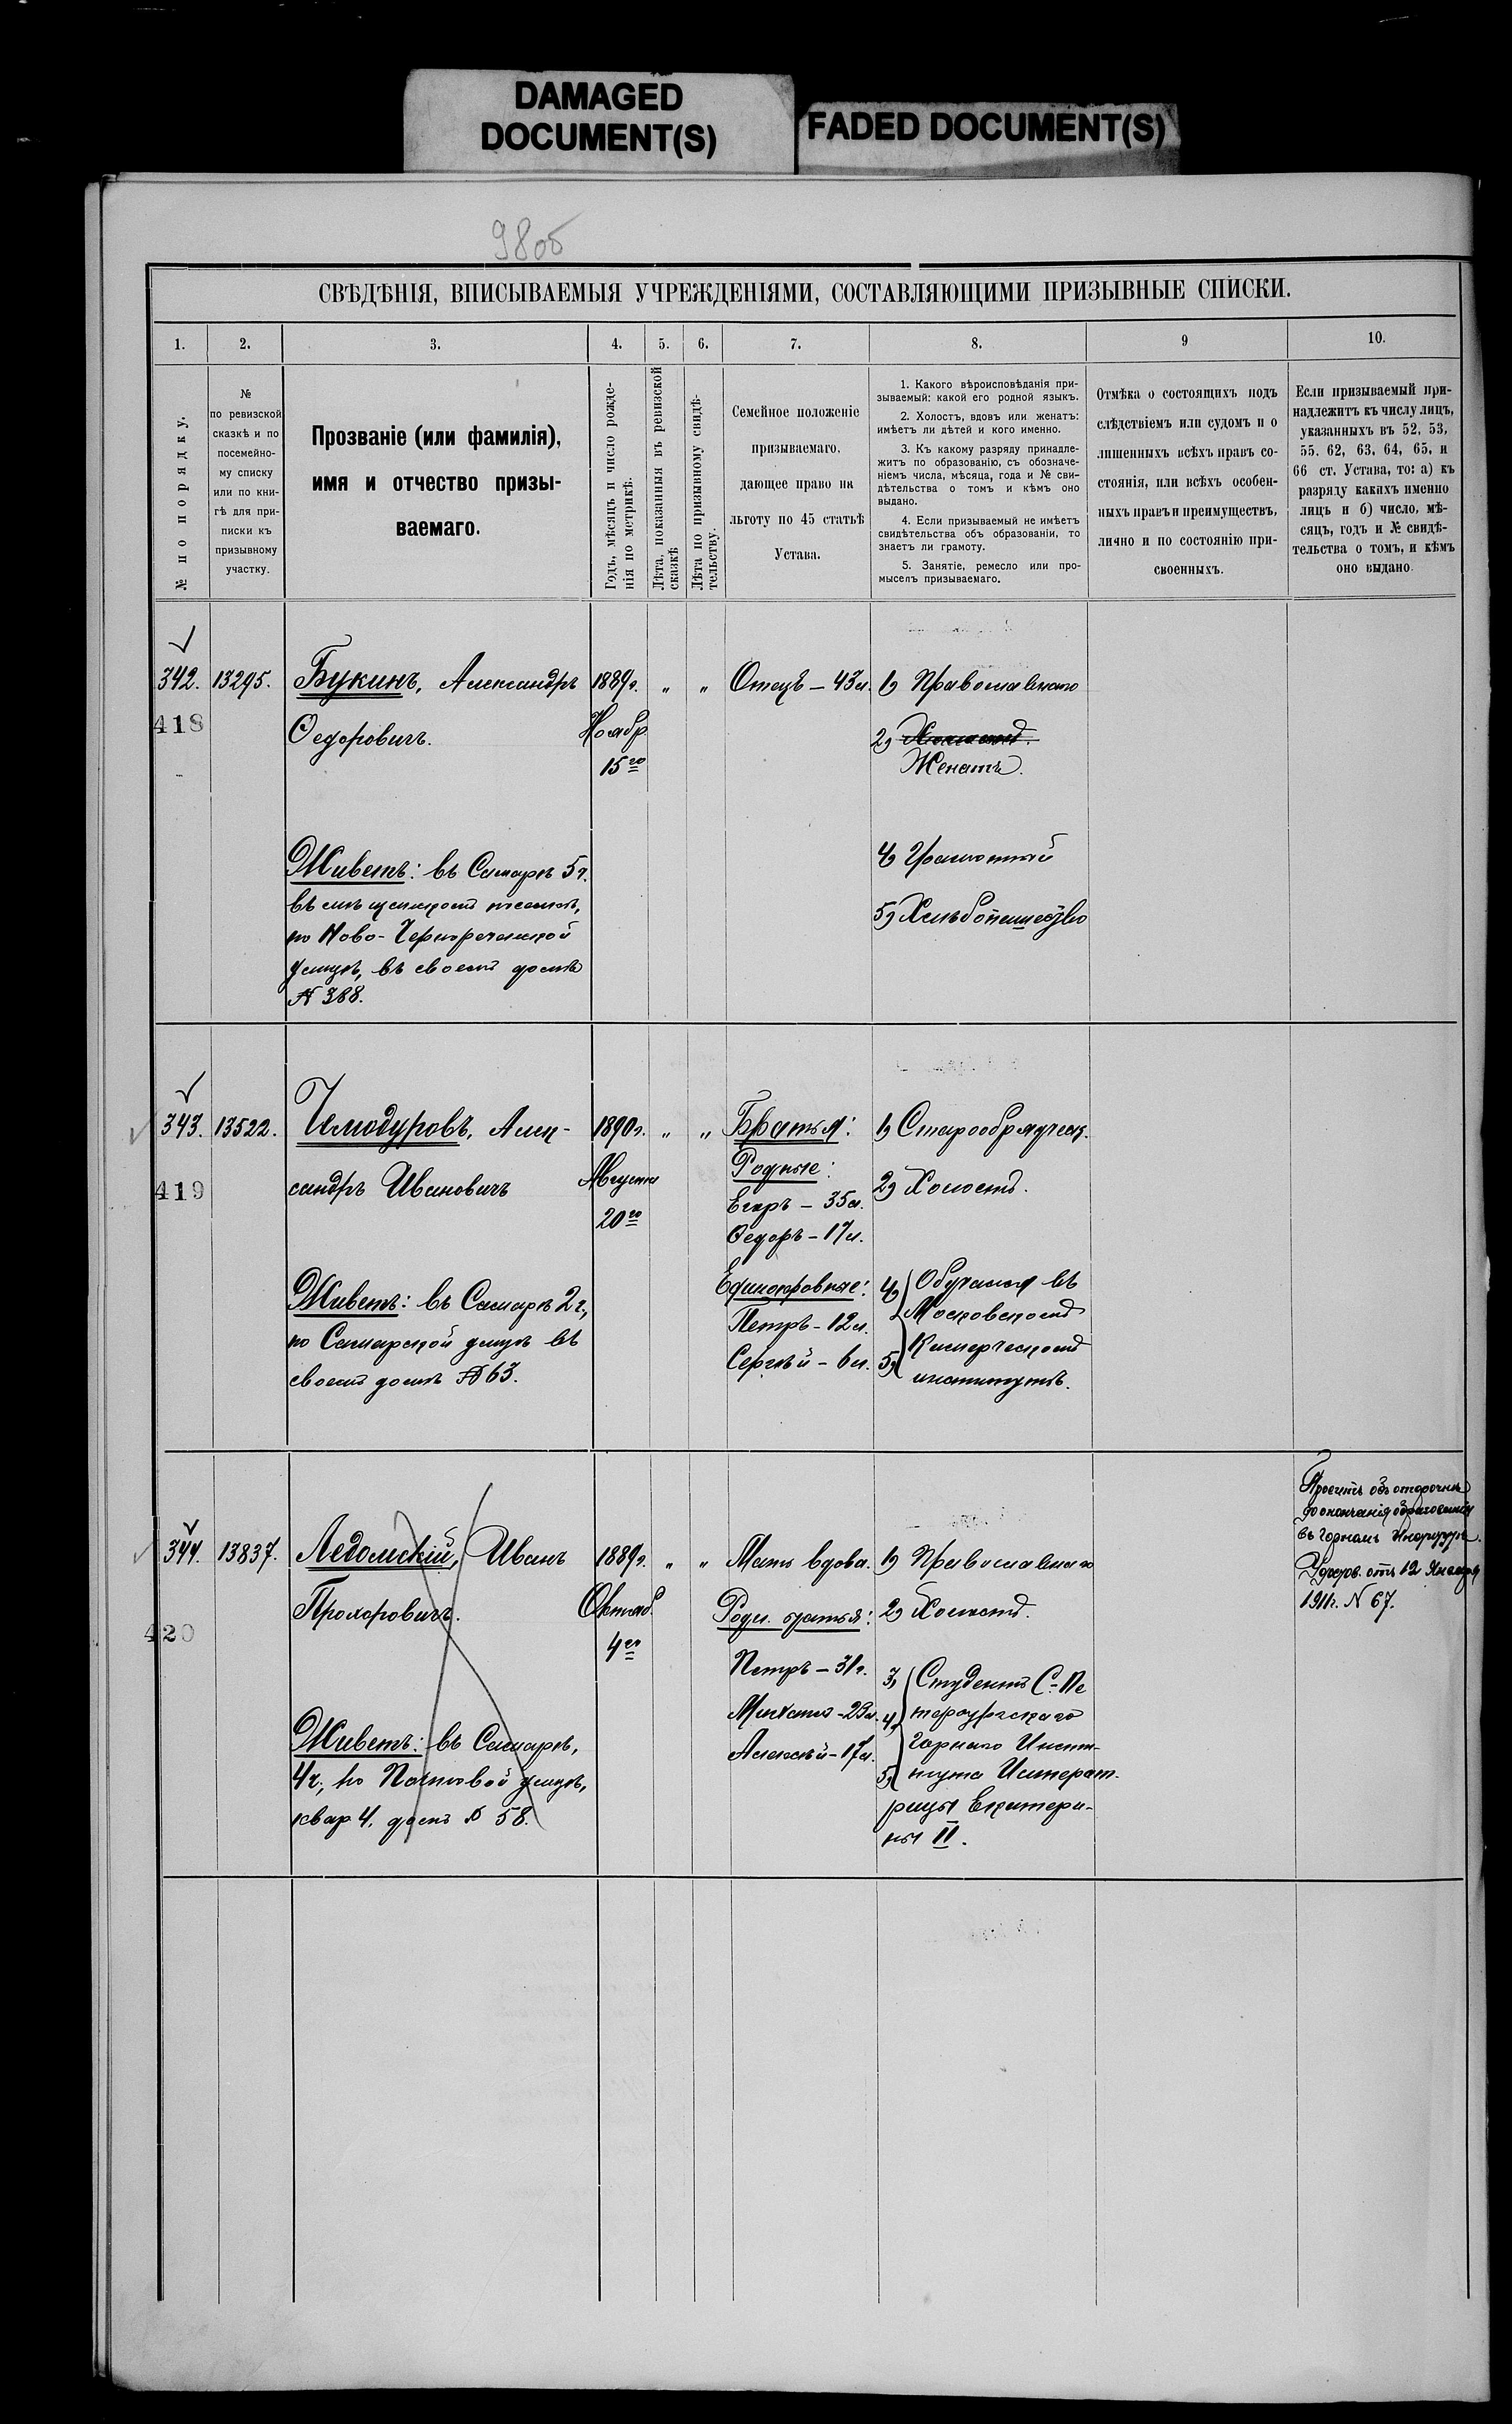 DAMAGED
DOCUMENT(S)
FADED DOCUMENT(S)
98об
СВѢДѢНІЯ, ВПИСЫВАЕМЫЯ УЧРЕЖДЕНІЯМИ, СОСТАВЛЯЮЩИМИ ПРИЗЫВНЫЕ СПИСКИ.
1.
2.
3.
4.
5.
6.
7.
8.
9
10.
№ по порядку.
№
по ревизской
сказкѣ и по
посемейно-
му списку
или по кни-
гѣ для при-
писки къ
призывному
участку.
Прозваніе (или фамилія),
имя и отчество призы-
ваемаго.
Годъ, мѣсяцъ и число рожде-
нія по метрикѣ.
Лѣта, показанныя въ ревизской
сказкѣ
Лѣта по призывному свидѣ-
тельству.
Семейное положеніе
призываемаго,
дающее право на
льготу по 45 статьѣ
Устава.
1. Какого вѣроисповѣданія при-
зываемый: какой его родной языкъ.
2. Холостъ, вдовъ или женатъ:
имѣетъ ли дѣтей и кого именно.
3. Къ какому разряду принадле-
житъ по образованію, съ обозначе-
ніемъ числа, мѣсяца, года и № сви-
дѣтельства о томъ и кѣмъ оно
выдано.
4. Если призываемый не имѣетъ
свидѣтельства объ образованіи, то
знаетъ ли грамоту.
5. Занятіе, ремесло или про-
мыселъ призываемаго.
Отмѣка о состоящихъ подъ
слѣдствіемъ или судомъ и о
лишенныхъ всѣхъ правъ со-
стоянія, или всѣхъ особен-
ныхъ правъ и преимуществъ,
лично и по состоянію при-
своенныхъ.
Если призываемый при-
надлежитъ къ числу лицъ,
указанныхъ въ 52, 53,
55, 62, 63, 64, 65, и
66 ст. Устава, то: а) къ
разряду какихъ именно
лицъ и б) число, мѣ-
сяцъ, годъ и № свидѣ-
тельства о томъ, и кѣмъ
оно выдано.
342.
418
13295.
Букинъ, Александръ
Ѳедоровичъ.
Живетъ: въ Самарѣ 5 ч.
по Ново-Чернореченской
улицѣ, въ своемъ домѣ
№ 388.
1889 г.
Ноябр.
15го
"
"
Отецъ - 43 л.
1) Православнаго
2) Холостъ.
Женатъ.
4) Грамотный
5) Хлѣбопашество
343.
419
13522.
Чемодуровъ, Алек-
сандръ Ивановичъ
Живетъ: въ Самарѣ 2 ч.,
по Самарской улицѣ въ
своемъ домѣ № 63.
1890 г.
Августа
20го
"
"
Братья:
Родные:
Егоръ - 35 л.
Ѳедоръ - 17 л.
Единокровные:
Петръ - 12 л.
Сергѣй - 6 л.
1) Старообрядческ.
2) Холостъ.
4) Обучался въ
Московскомъ
Комерческомъ
5) институтѣ.
344.
420
13837.
Ледомскій, Иванъ
Прохоровичъ.
Живетъ: въ Самарѣ,
4 ч., по Почтовой улицѣ,
квар 4. домъ № 58.
1889 г.
Октяб.
4го
"
"
Мать вдова.
Родн. братья:
Петръ - 31 г.
Михаилъ - 23 л.
Алексѣй - 17 л.
1) Православнаго
2) Холостъ.
3) Студентъ С-Пе
4) тербургскаго
Горнаго Инсти-
5) тута Императ-
рицы Екатери-
ны II.
Проситъ объ отсрочкѣ
до окончанія образованія
въ Горномъ Институтѣ.
Удостов. отъ 12 Января
1911 г. № 67.